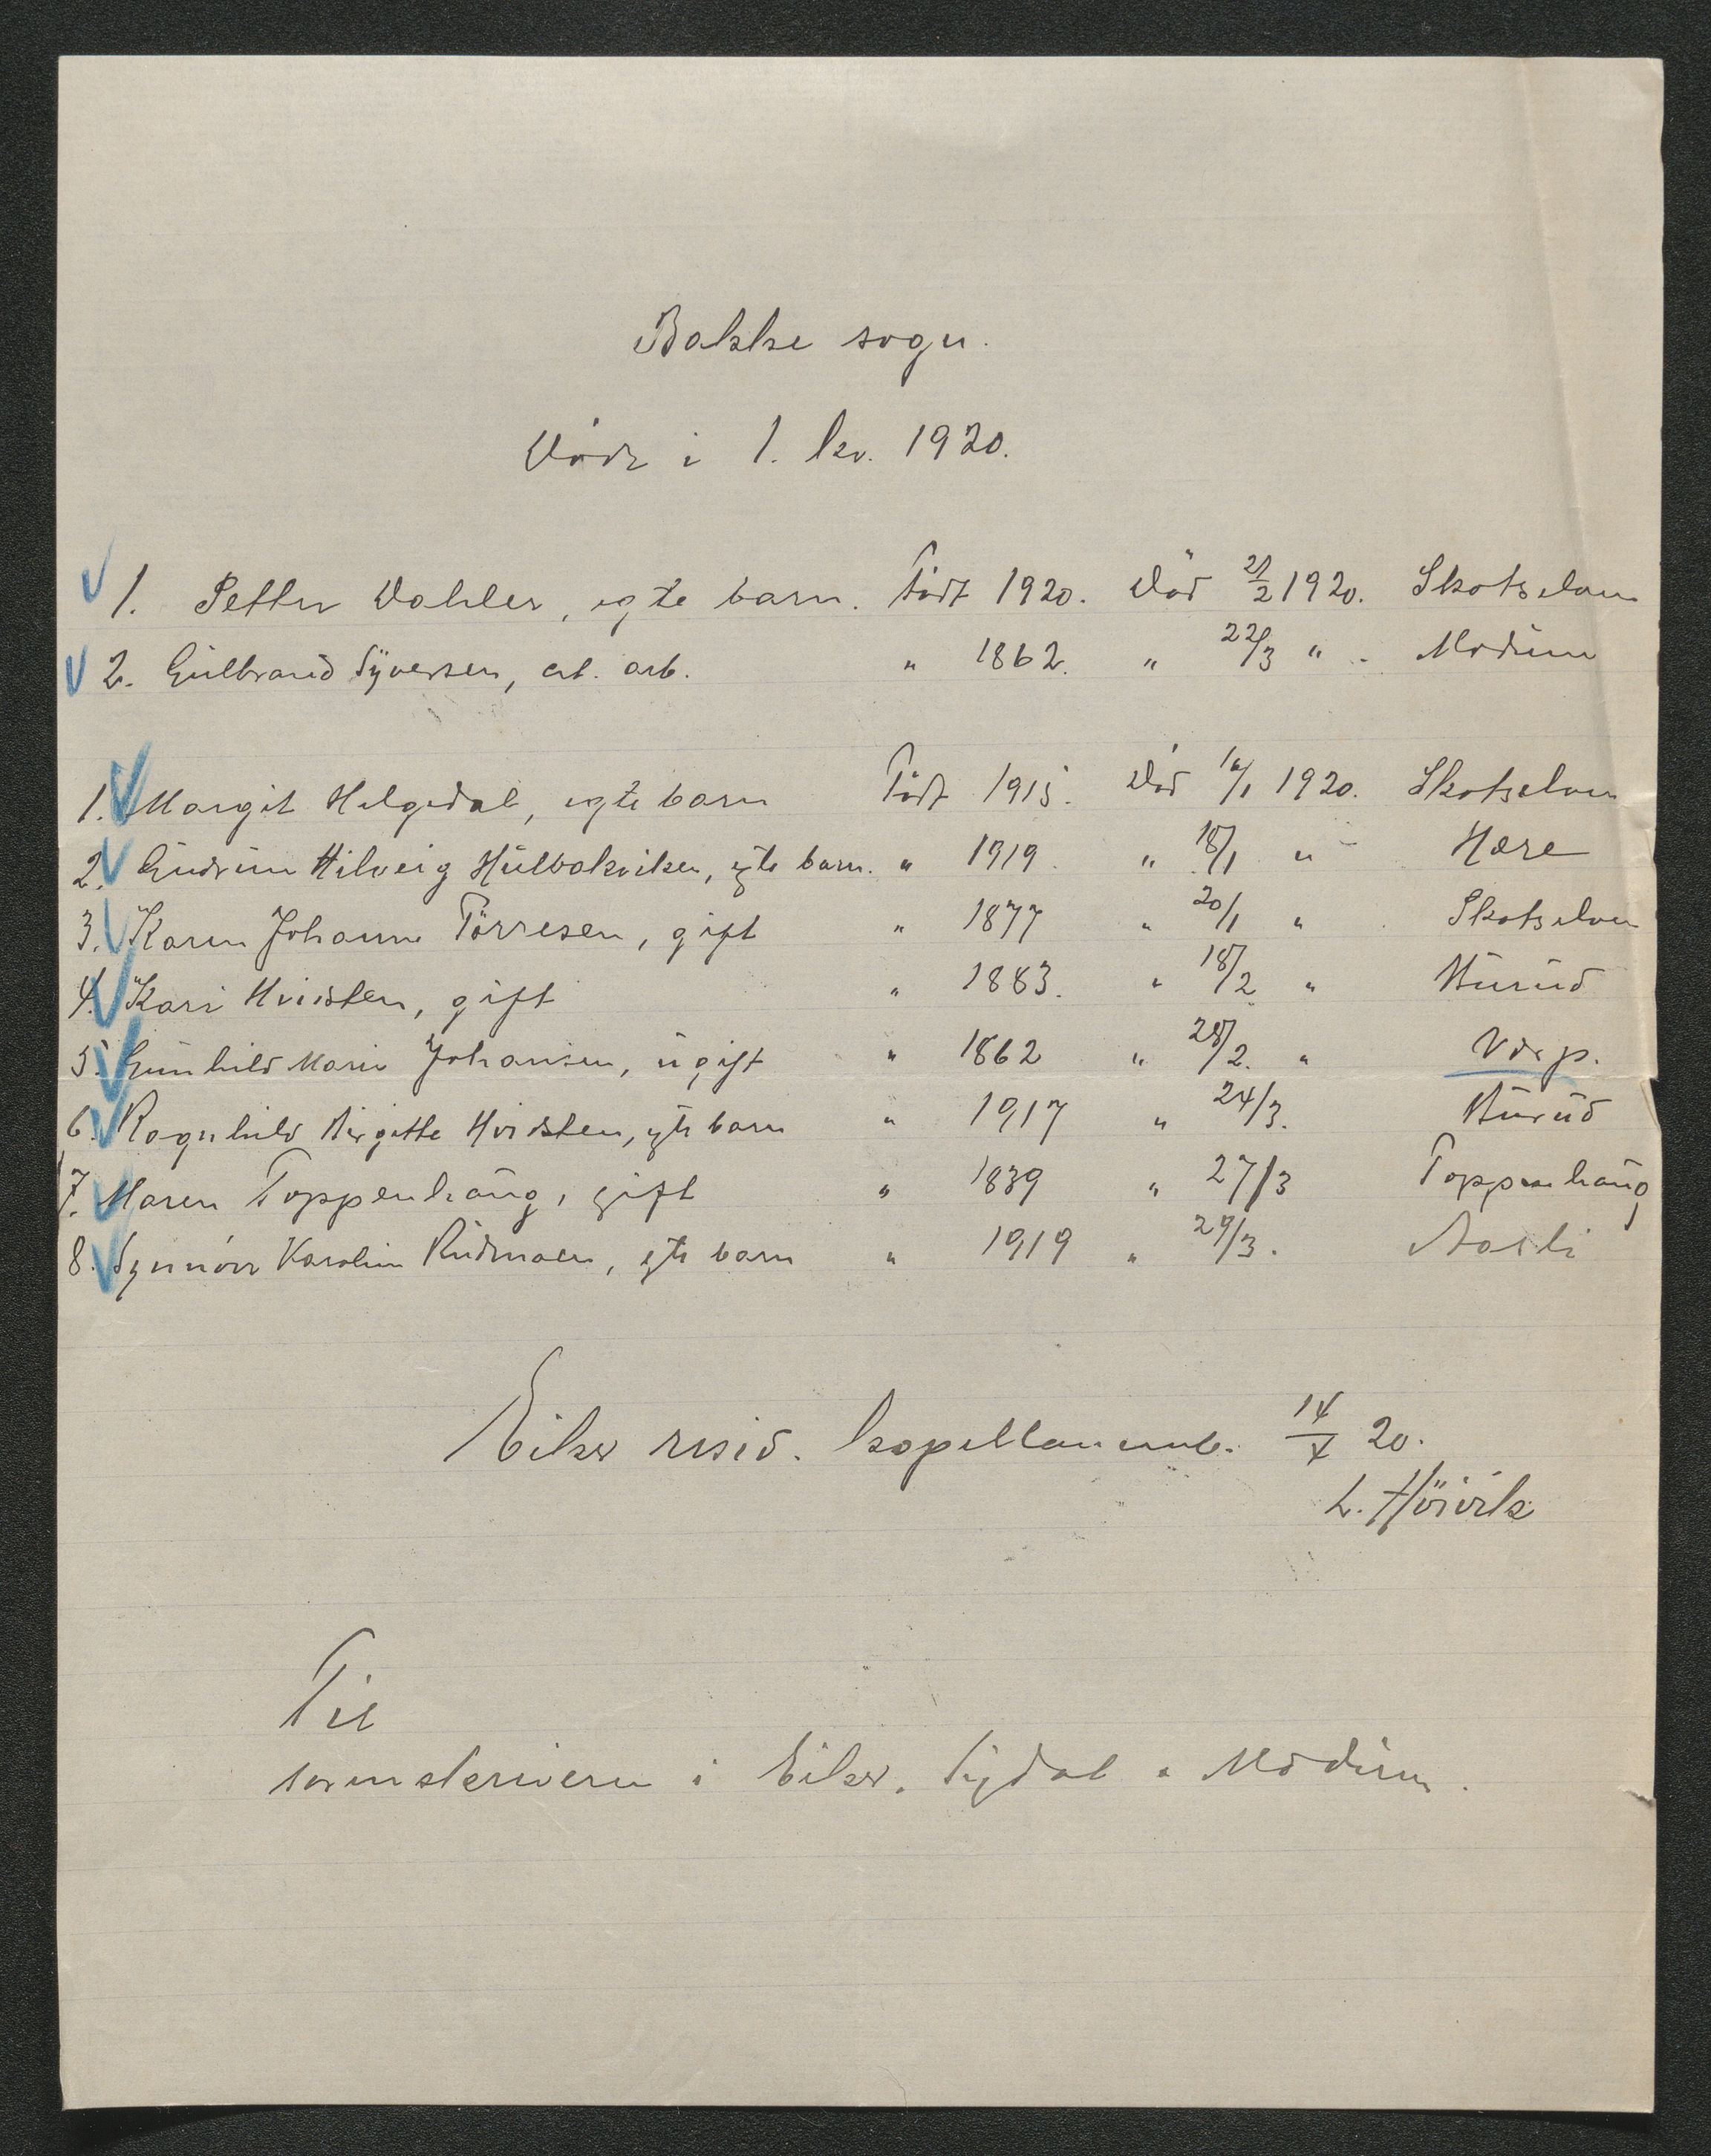 Bakke sogn.
Döde i 1. kv. 1920.
1. Petter Dahler, egte barn. Födt 1920. Död 21/2 1920. Skotselven
2. Gulbrand Syversen, arb. " 1862. " 22/3 " . Modum
1. Margit Helgedal, egte barn Födt 1915. Död 16/1 1920. Skotselven
2. Gudrun Hilveig Hulbakviken, egte barn. " 1919. " 18/1 " Hære
3. Karen Johanne Törresen, gift " 1877 " 20/1 " Skotselven
4. Kari Hvidsten, gift " 1883. " 18/2 " Hurud
5. Gunhild Marie Johansen, ugift " 1862 " 28/2. "
6. Ragnhild Birgitte Hvidsten, egte barn " 1917 " 24/3. Hurud
7. Maren Toppenhaug, gift " 1839 " 27/3 Toppenhaug
8. Synnöve Karoline Rudmoen, egte barn " 1919 " 29/3. Aasli
Eiker resid. kapellanemb. 14/4 20.
L. Höivik
Til
sorenskriveren i Eiker, Sigdal o Modum.